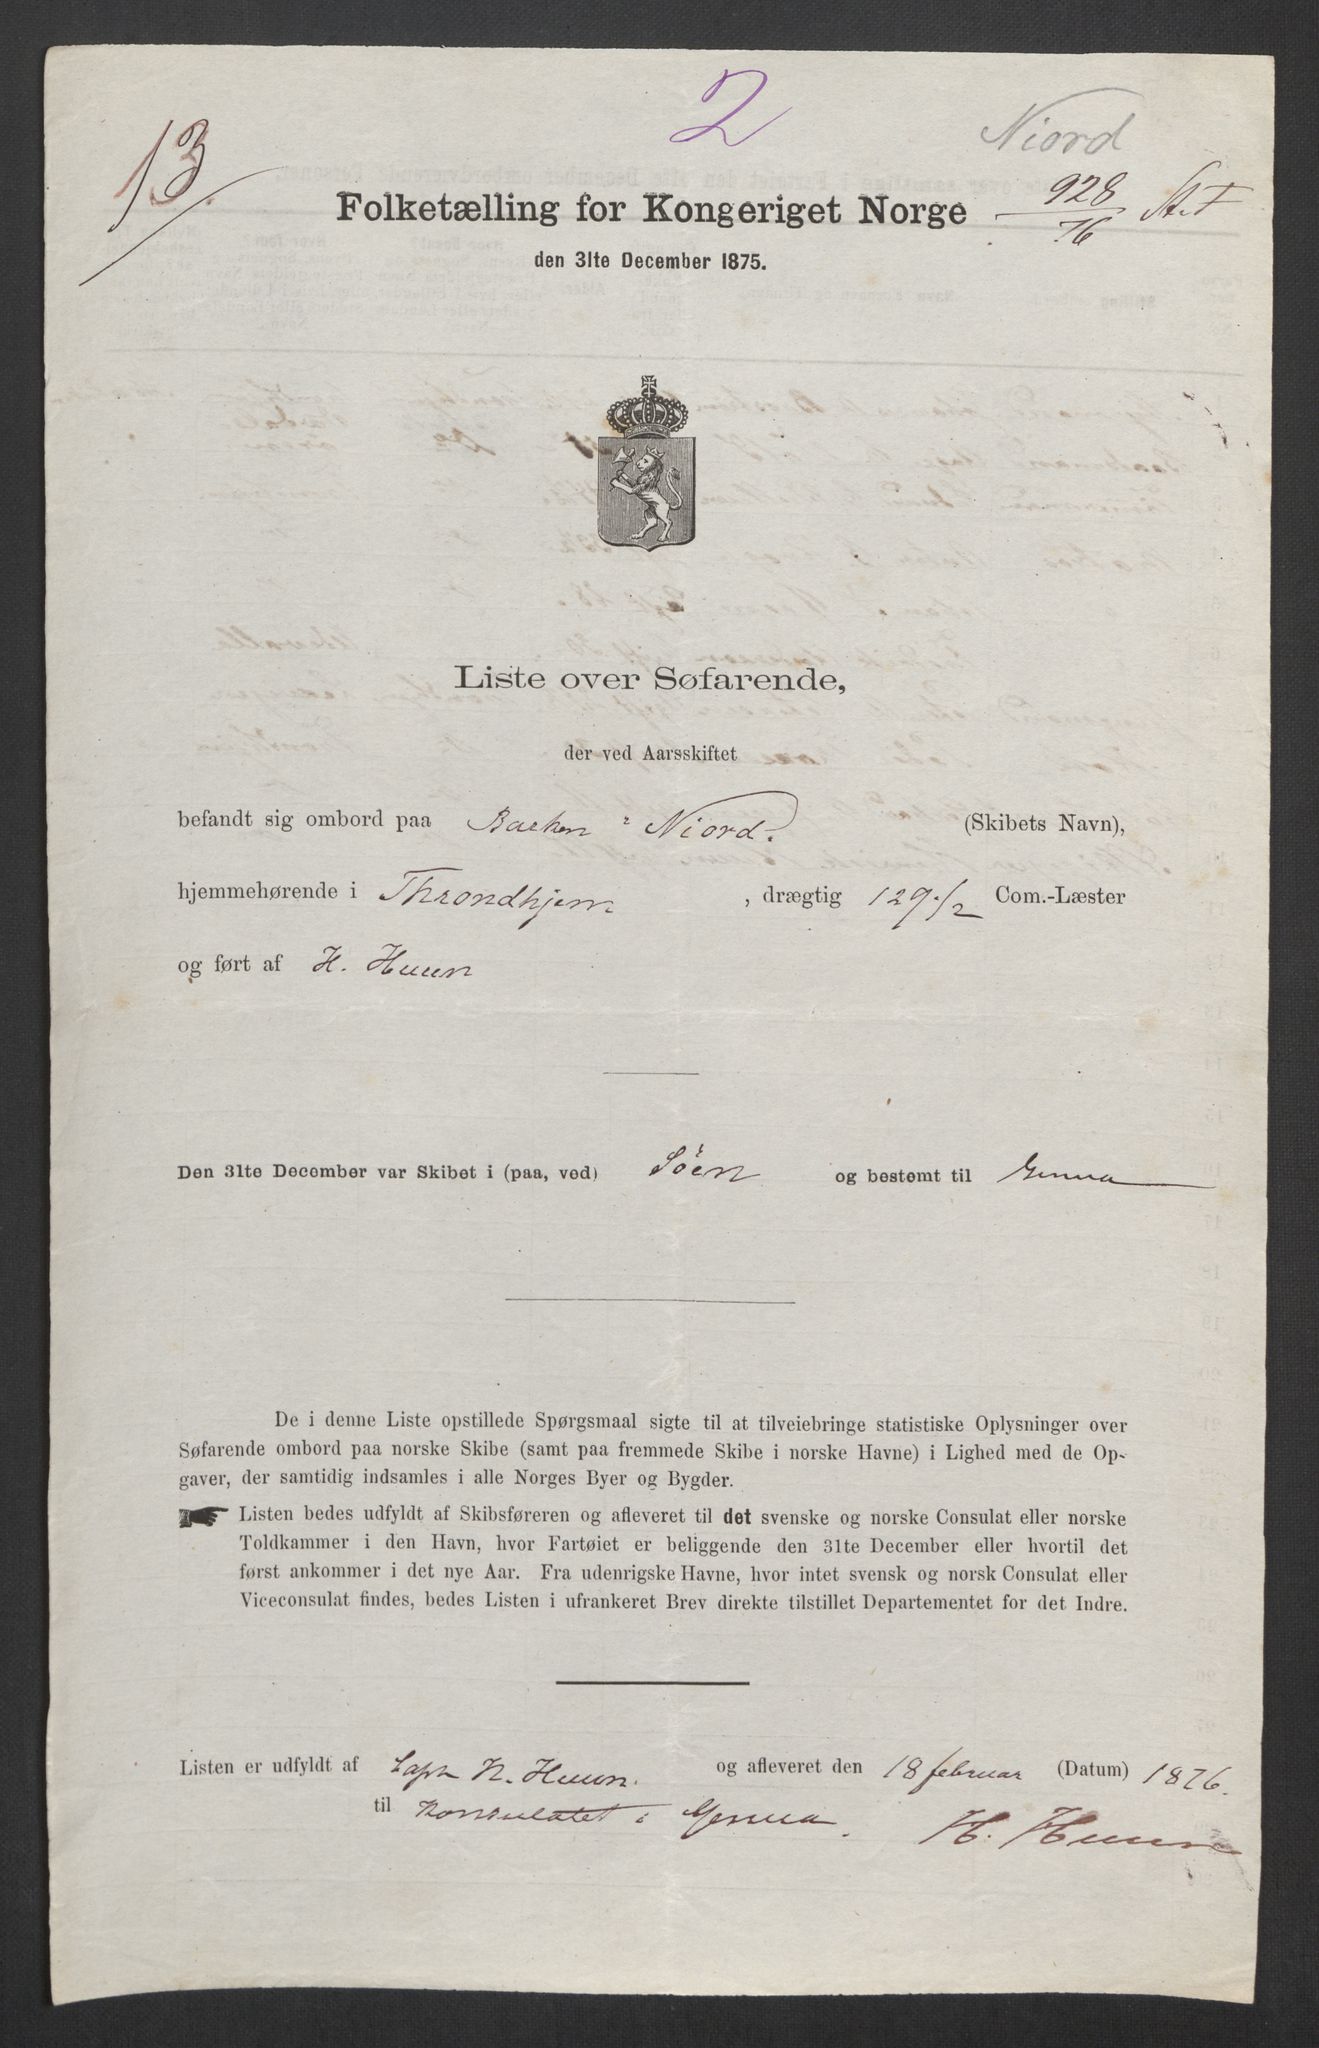 13.
2
Niord
928/76 St. A
Folketælling for Kongeriget Norge
den 31te December 1875.
Liste over Søfarende,
der ved Aarsskiftet
befandt sig ombord paa Barken Niord. (Skibets Navn),
hjemmehørende i Throndhjem, drægtig 129 1/2 Com.-Læster
og ført af H. Huun
Den 31te December var Skibet i (paa, ved) Söen og bestemt til Genua
De i denne Liste opstillede Spørgsmaal sigte til at tilveiebringe statistiske Oplysninger over
Søfarende ombord paa norske Skibe (samt paa fremmede Skibe i norske Havne) i Lighed med de Op-
gaver, der samtidig indsamles i alle Norges Byer og Bygder.
Listen bedes udfyldt af Skibsføreren og afleveret til det svenske og norske Consulat eller norske
Toldkammer i den Havn, hvor Fartøiet er beliggende den 31te December eller hvortil det
først ankommer i det nye Aar. Fra udenrigske Havne, hvor intet svensk og norsk Consulat eller
Viceconsulat findes, bedes Listen i ufrankeret Brev direkte tilstillet Departementet for det Indre.
Listen er udfyldt af Capt H. Huun. og afleveret den 18 februar (Datum) 1876.
til Konsulatet i Genua. H. Huun